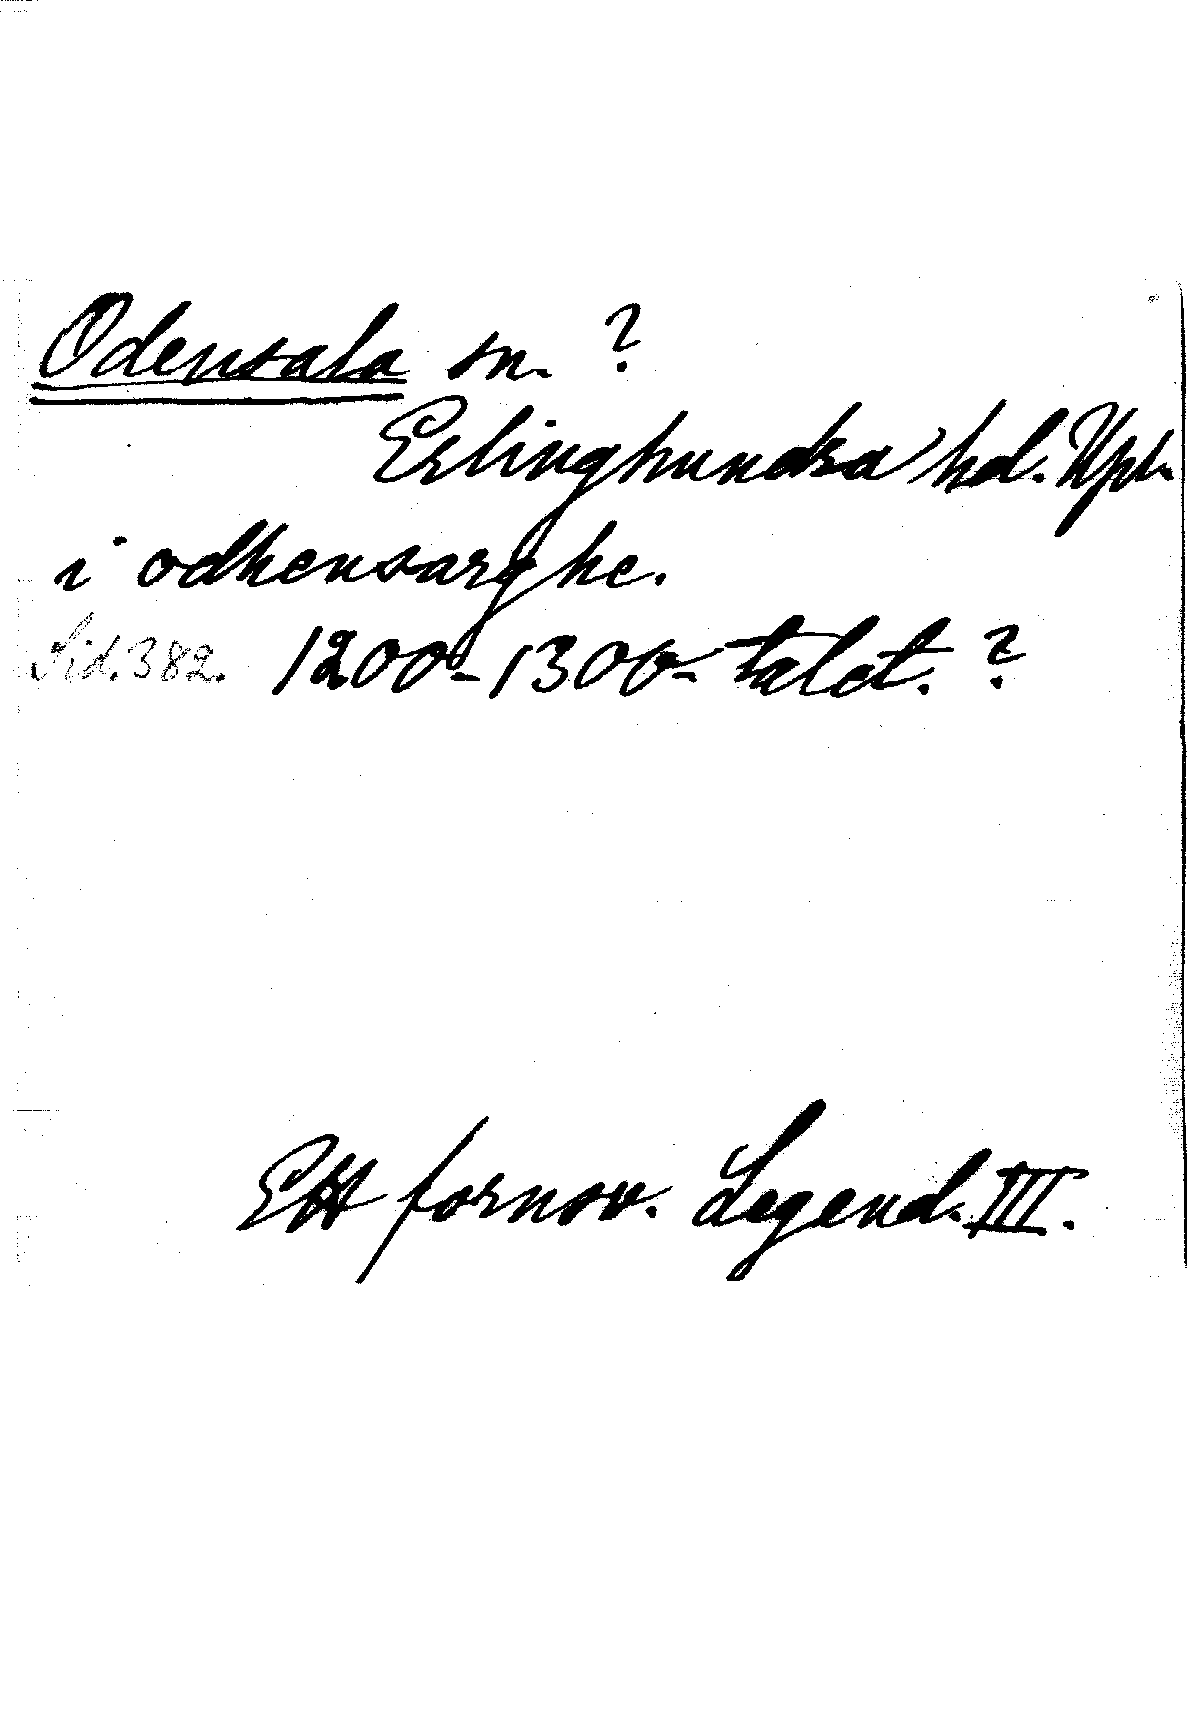 Odensala sn. ?
Erlinghundra hd. Upl.
i odhensarghe.
Sid. 382. 1200-1300-talet. ?
Ett fornsv. Legend. III.